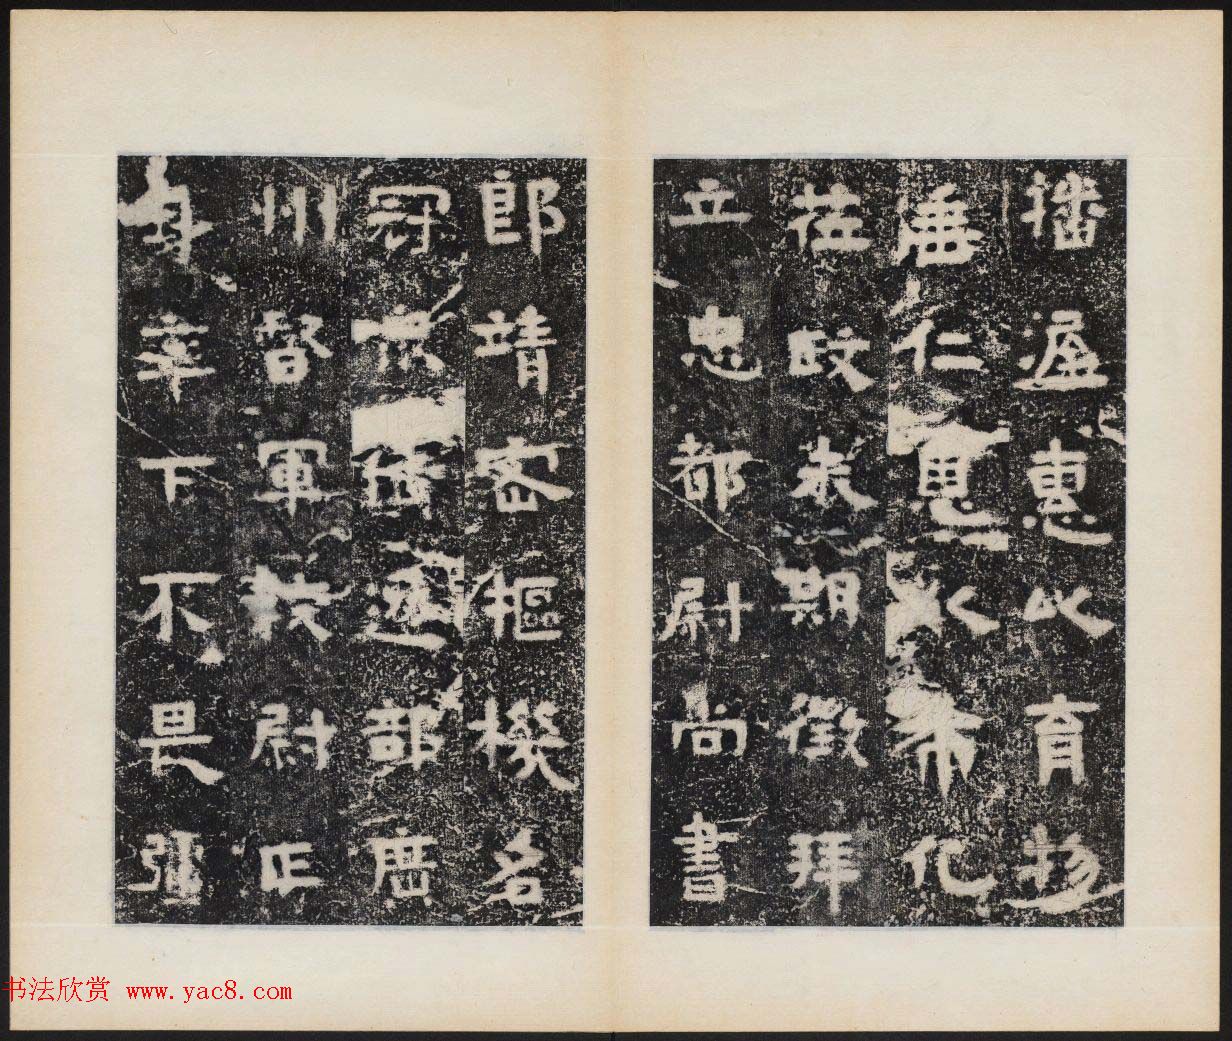 播渥惠以育物
垂仁恩以布化
莅政未期徵拜
立忠都尉尚書
郎靖密樞機名
冠衆僚遷部廣
州督軍校尉正
身率下不畏强
书法欣赏 www.yac8.com